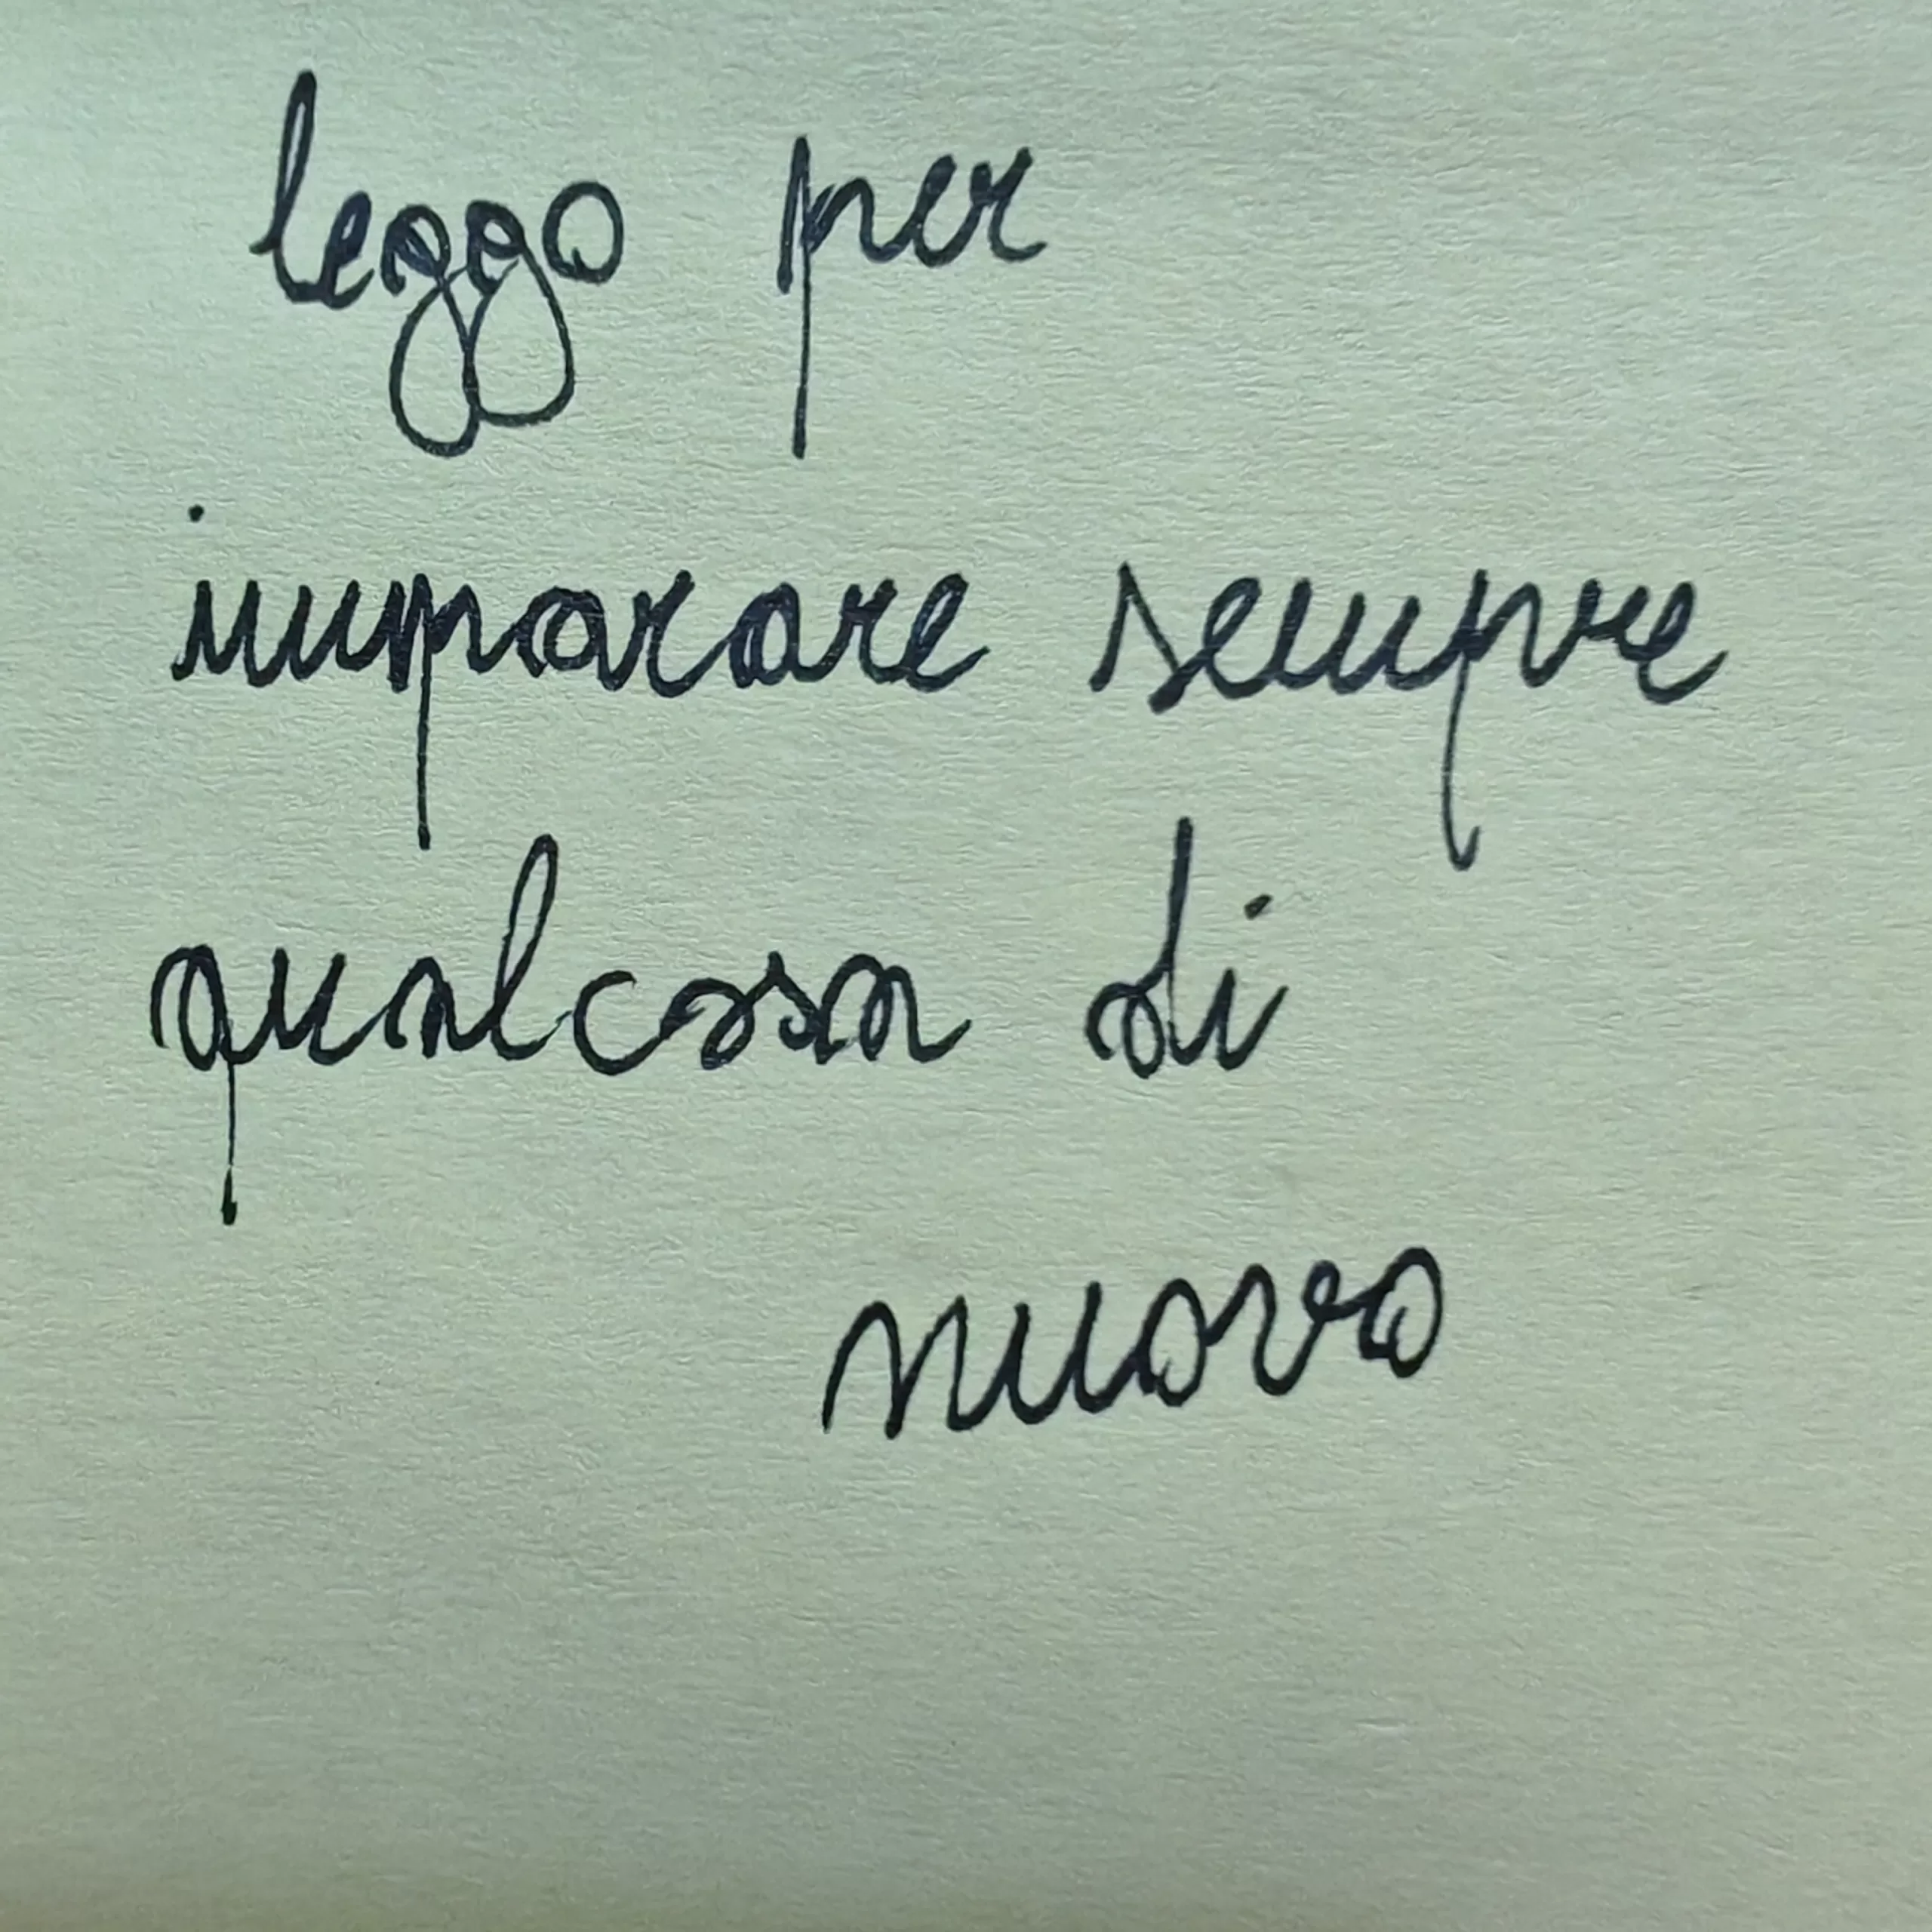 leggo per
imparare sempre
qualcosa di
nuovo